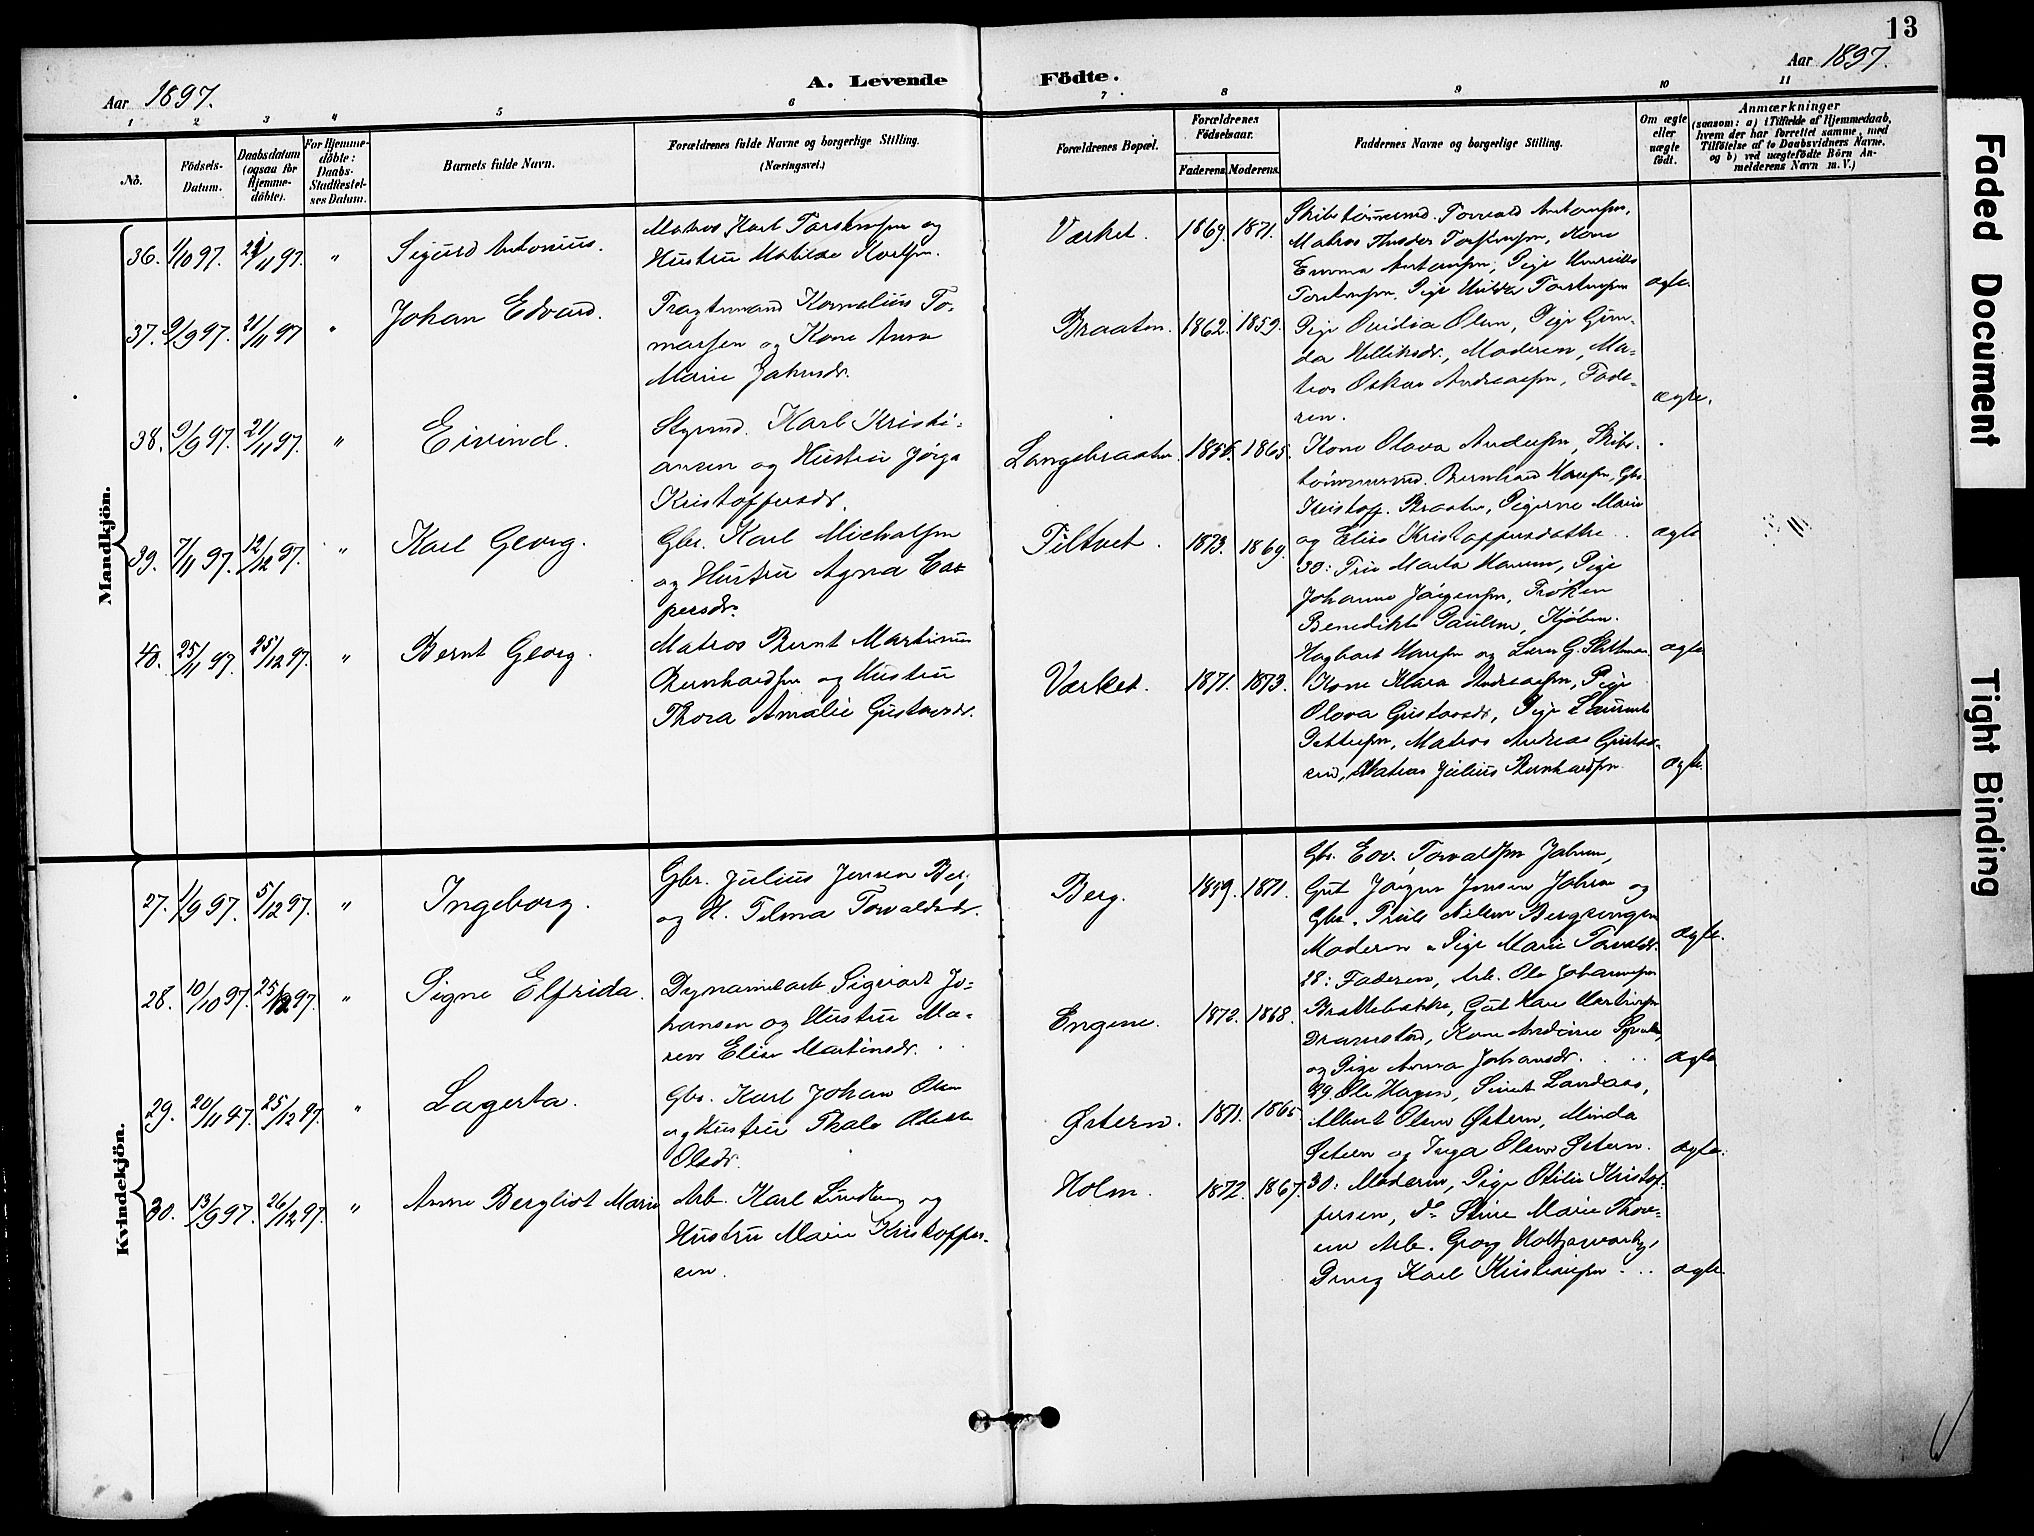 13
Aar 1897.
A. Levende Födte.
Aar 1897.
1 2 3 4 5 6 7 8 9 10 11
No.
Födsels-
Datum.
Daabsdatum
(ogsaa for
Hjemme-
döbte).
For Hjemme-
döbte:
Daabs-
Stadfæstel-
ses Datum.
Barnets fulde Navn.
Forældrenes fulde Navne og borgerlige Stilling.
(Næringsvei.)
Forældrenes Bopæl.
Forældrenes
Födselsaar.
Faderens. Moderens.
Faddernes Navne og borgerlige Stilling.
Om ægte
eller
uægte
födt.
Anmærkninger
(saasom: a) i Tilfælde af Hjemmedaab,
hvem der har forrettet samme, med
Tilföielse af to Daabsvidners Navne.
og b) ved uægtefödte Börn An-
melderens Navn m. V.)
Mandkjön.
36. 1/10 97. 21/11 97. " Sigurd Antonius.
Matros Karl Torstensen og
Hustru Matilde Karlsen.
Værket. 1869. 1871.
Skibstømmermd. Torvald Antonsen,
Matros Anders Torstensen, Kone
Emma Antonsen, Pige
Torstensen, Pige Hulda Torstensen
ægte.
37. 9/9 97. 21/11 97 " Johan Edvard.
Fragtemand Kornelius To-
massen og Kone Anna
Marie Jahnsdr.
Braaten. 1862. 1859.
Pige Ovidia Olsen, Pige Gun-
da Helliksdr., Moderen, Ma-
tros Oskar Andreassen, Fade-
ren.
ægte.
38. 9/9 97. 21/11 97. " Eivind.
Styrmd. Karl Kristi-
ansen og Hustru Jørga
Kristoffersdr.
Langebraaten. 1856. 1865.
Kone Olava Andersen, Skibs-
tømmermd. Bernhard Hansen, Gbr.
Kristof. Braaten, Pigerne Marie
og Elise Kristoffersdøttre.
ægte
39. 7/11 97. 12/12 97. " Karl Georg.
Gbr. Karl Michalsen
og Hustru Agna Cas-
persdr.
Filtvet. 1873. 1869.
30: Fru Marta Hansen, Pige
Johanne Jørgensen, Frøken
Benedikte Paulsen, Kjøbm.
Hagbart Hansen og Lærer G. Skiltman
ægte
40. 25/11 97. 25/12 97. " Bernt Georg.
Matros Bernt Martinus
Bernhardsen og Hustru
Thora Amalie Gustavsdr.
Værket. 1871. 1873.
Kone Klara Andreassen, Pige
Olava Gustavsdr, Pige Laurentse
Pettersen, Matros Andreas Gustav-
sen, Matros Julius Bernhardsen.
ægte.
Kvindekjön.
27. 1/9 97. 5/12 97. " Ingeborg.
Gbr. Julius Jensen Berg
og H. Tilma Torvaldsdr.
Berg. 1859. 1871.
Gbr. Edv. Torvaldsen Jahren,
Gut Jørgen Jensen Jahren og
Gbr. Truls Nilsen Bergsengen
Moderen & Pige Marie Torvaldsdr.
ægte.
28. 10/10 97. 25/12 97. " Signe Elfrida.
Dynamitarb. Sigvart Jo-
hansen og Hustru Ma-
ren Elise Martinsdr.
Engene. 1872. 1868.
28: Faderen, Arb. Ole Johannesen
Brattebakke, Gut Hans Martinsen
Dramstad, Kone Andrine
og Pige Anna Johansdr.
ægte
29. 20/11 97. 25/12 97. " Lagerta.
Gbr. Karl Johan Olsen
og Hustru Thale
Olsdr.
Østern. 1871. 1865.
29. Ole Hagen, Landaas,
Albert Olsen Østern, Minda
Østern og Inga Olsen Østern.
ægte.
30. 13/9 97. 26/12 97. " Anne Bergliot Marie
Arb. Karl Lindberg og
Hustru Marie Kristoffer-
sen.
Holm. 1872. 1867.
30: Moderen, Pige Otilie Kristof-
fersen, do Stine Marie Thore-
sen Arb. Georg
Dreng Karl Kristiansen
ægte.
Faded Document
Tight Binding